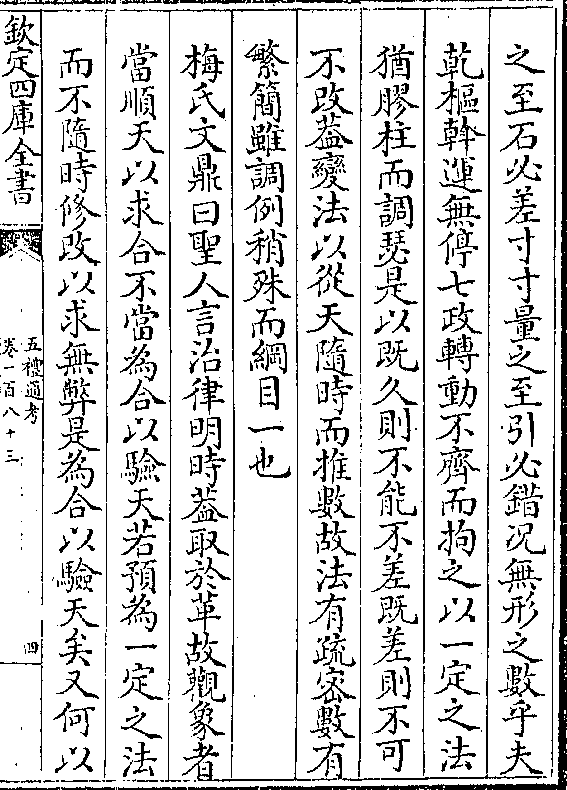 之至石必差寸寸量之至引必錯况無形之數乎夫
乾樞斡運無停七政轉動不齊而拘之以一定之法
猶膠柱而調瑟是以既久則不能不差既差則不可
不改葢變法以從天隨時而推數故法有疏密數有
繁簡雖調例稍殊而綱目一也
梅氏文鼎曰聖人言治律明時葢取於革故觀象者
當順天以求合不當為合以驗天若預為一定之法
而不隨時修改以求無弊是為合以驗天矣又何以
欽定四庫全書
五禮通考
卷一百八十三
四